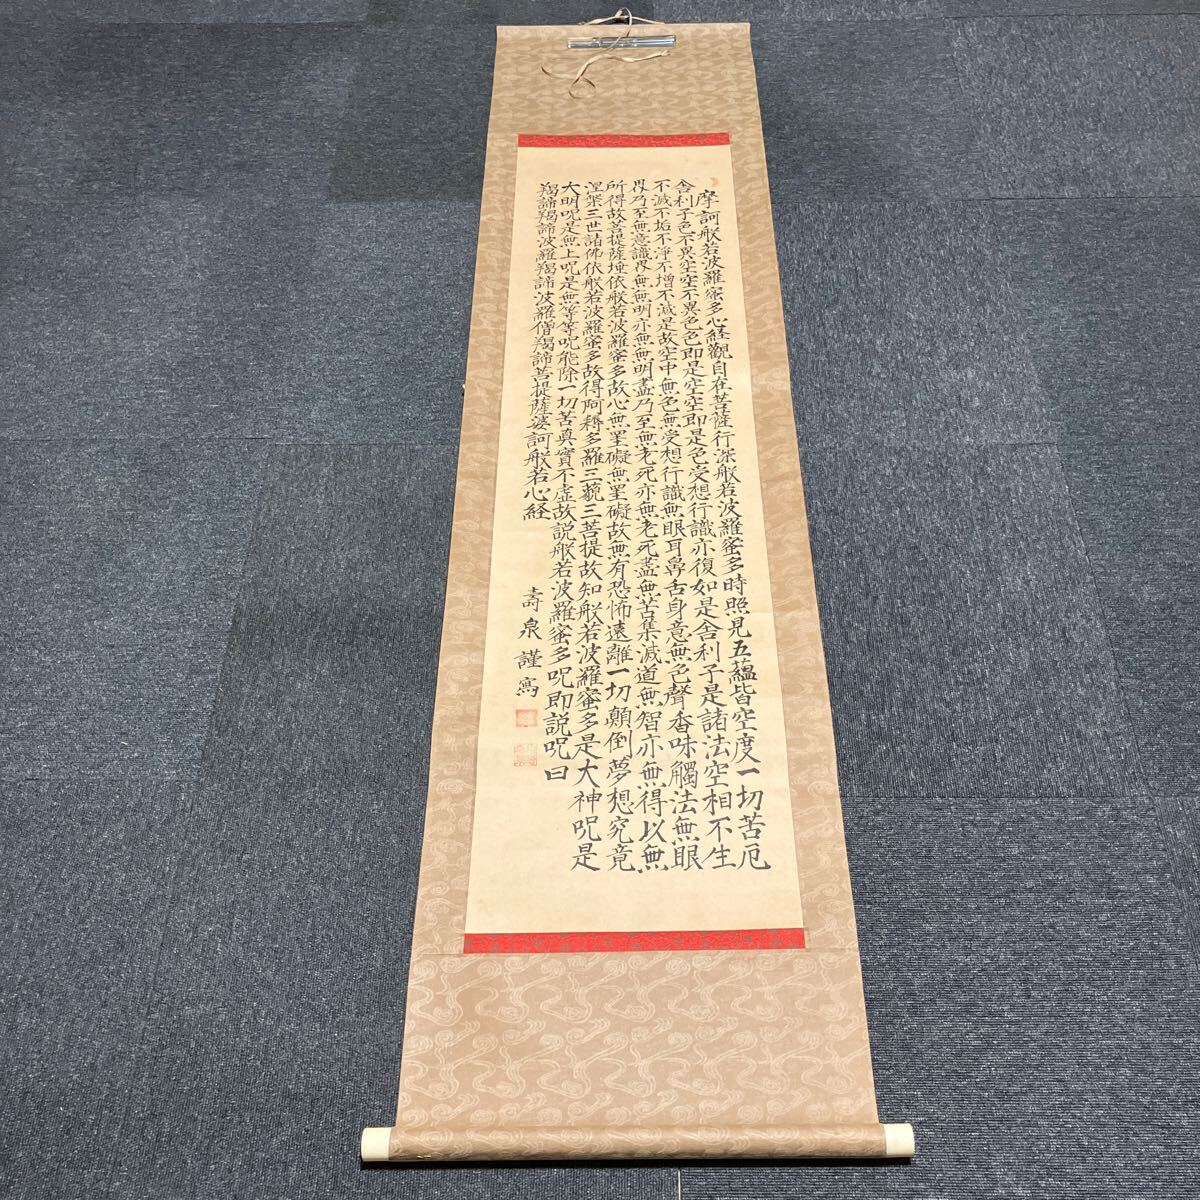 摩訶般若波羅蜜多心経觀自在菩薩行深般若波羅蜜多時照見五蘊皆空度一切苦厄
舍利子色不異空空不異色色即是空空即是色受想行識亦復如是舍利子是諸法空相不生
不滅不垢不淨不增不減是故空中無色無受想行識無眼耳鼻舌身意無色聲香味觸法無眼
界乃至無意識界無無明亦無無明盡乃至無老死亦無老死盡無苦集滅道無智亦無得以無
所得故菩提薩埵依般若波羅蜜多故心無罣礙無罣礙故無有恐怖遠離一切顛倒夢想究竟
涅槃三世諸佛依般若波羅蜜多故得阿耨多羅三藐三菩提故知般若波羅蜜多是大神呪是
大明呪是無上呪是無等等呪能除一切苦真實不虛故説般若波羅蜜多呪即説呪曰
羯諦羯諦波羅羯諦波羅僧羯諦菩提薩婆訶般若心経
壽泉謹寫